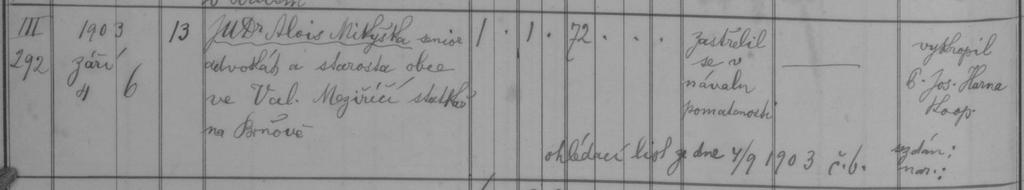 III 1903 13 JUDr Alois Mikyška senior 1 . 1 . 72 . . . zastřelil vykropil
292 září advokát a starosta obce se v P. Jos. Harna
4 6 ve Val. Meziříčí statkář návalu koop.
na Brňově pomatenosti
ohledací list ze dne 4/9 1903 č. 6.